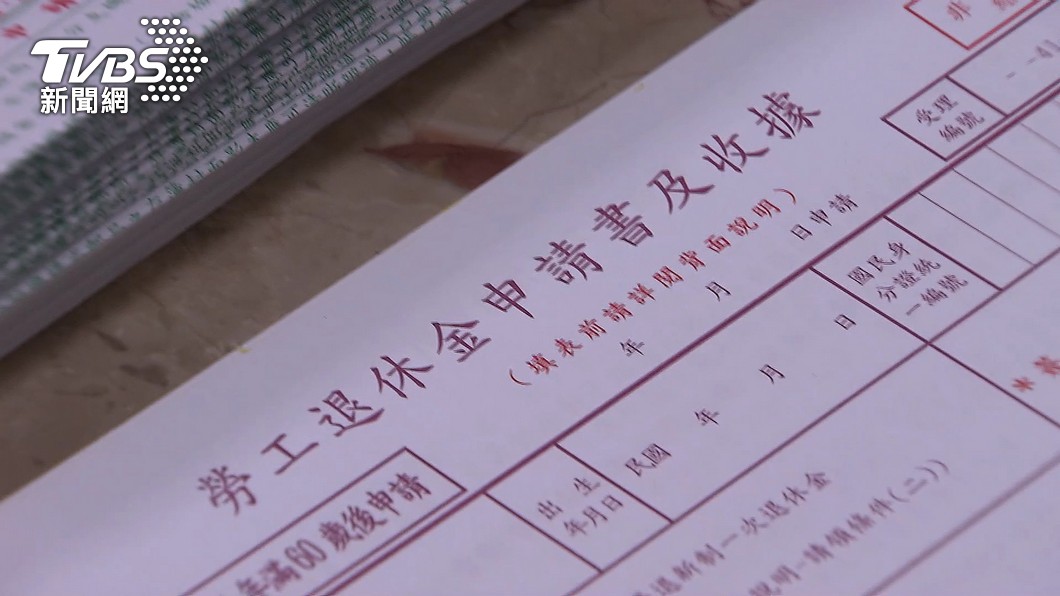 TVBS
新聞網
受理
編號
勞工退休金申請書及收據
(填表前請詳閱背面說明)
年 月 日申請
年滿60歲後申請
出生
年月日
民國 年 月 日
國民身
分證統
一編號
退新制一次退休金
說明-請領條件(二))